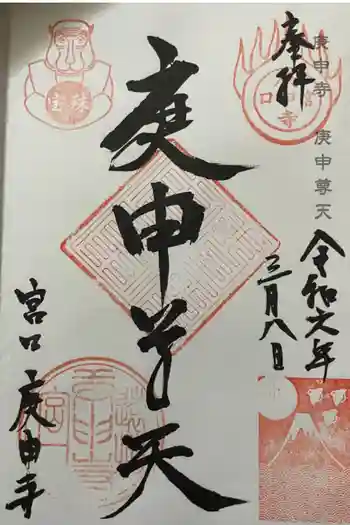 奉拝
庚申寺 庚申尊天
令和六年
三月八日
庚申尊天
宮口 庚申寺
宝珠